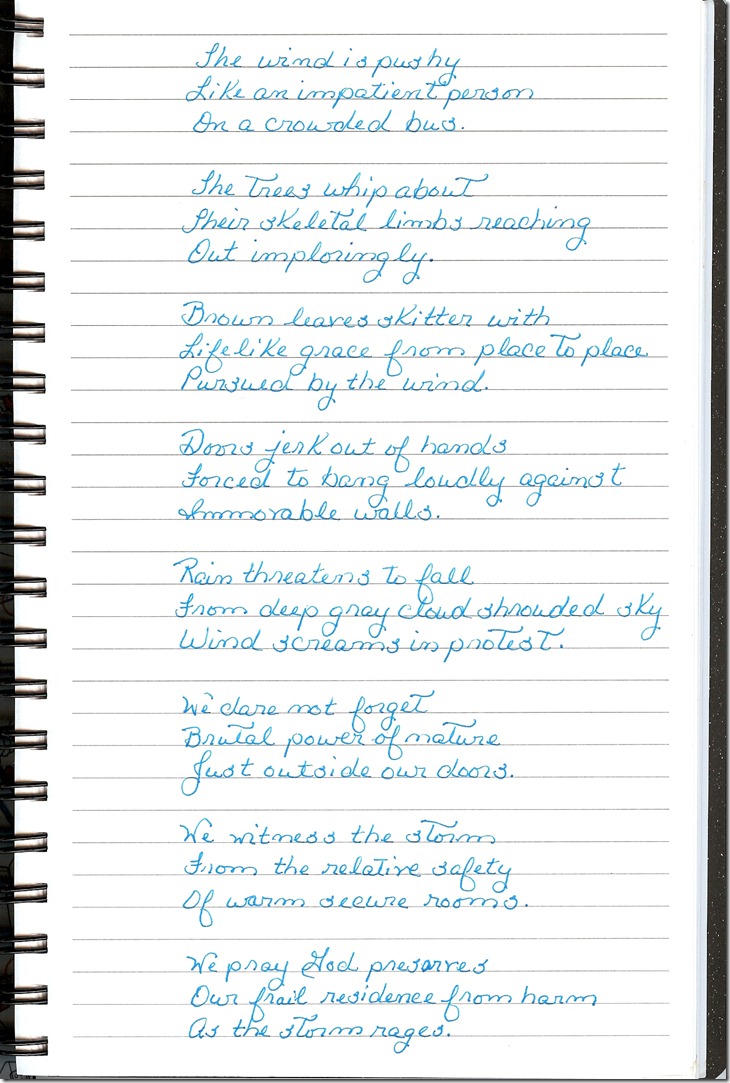 The wind is pushy
Like an impatient person
On a crowded bus.
The Trees whip about
Their skeletal limbs reaching
Out imploringly.
Brown leaves skitter with
Lifelike grace from place to place
Pursued by the wind.
Doors jerk out of hands
Forced to bang loudly against
Immovable walls.
Rain threatens to fall
From deep gray cloud shrouded sky
Wind screams in protest.
We dare not forget
Brutal power of nature
Just outside our doors.
We witness the storm
From the relative safety
Of warm secure rooms.
We pray God preserves
Our frail residence from harm
As the storm rages.